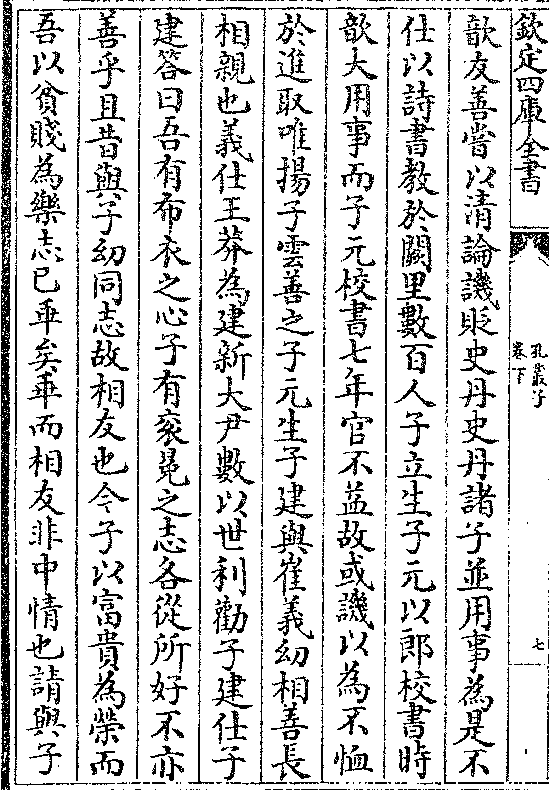 欽定四庫全書
孔叢子
卷下
七
歆友善嘗以清論譏貶史丹史丹諸子並用事為是不
仕以詩書教於闕里數百人子立生子元以郎校書時
歆大用事而子元校書七年官不益故或譏以為不恤
於進取唯揚子雲善之子元生子建與崔義幼相善長
相親也義仕王莽為建新大尹數以世利勸子建仕子
建答曰吾有布衣之心子有衮冕之志各從所好不亦
善乎且昔與子幼同志故相友也今子以富貴為榮而
吾以貧賤為樂志已乖矣乖而相友非中情也請與子